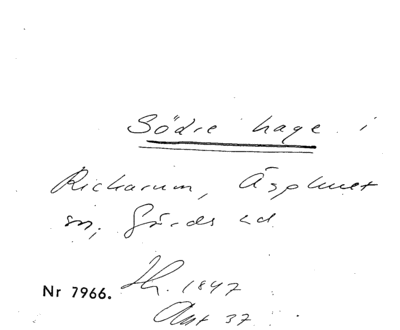 Södre hage i
Rickarum, Äsphult
sn, Gärds hd
Nr 7966. Th. 1847
Ant 37